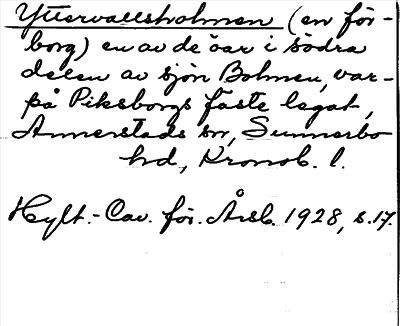 Yttervallsholmen (en för-
borg) en av de öar i södra
delen av sjön Bolmen, var-
på Piksborgs fäste legat,
Annerstads sn, Sunnerbo
hd., Kronob. l.
Hylt.-Cav. för. Årsb. 1928, s. 17.